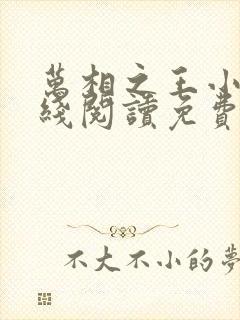 萬相之王小
綫閱讀免費
不大不小的夢